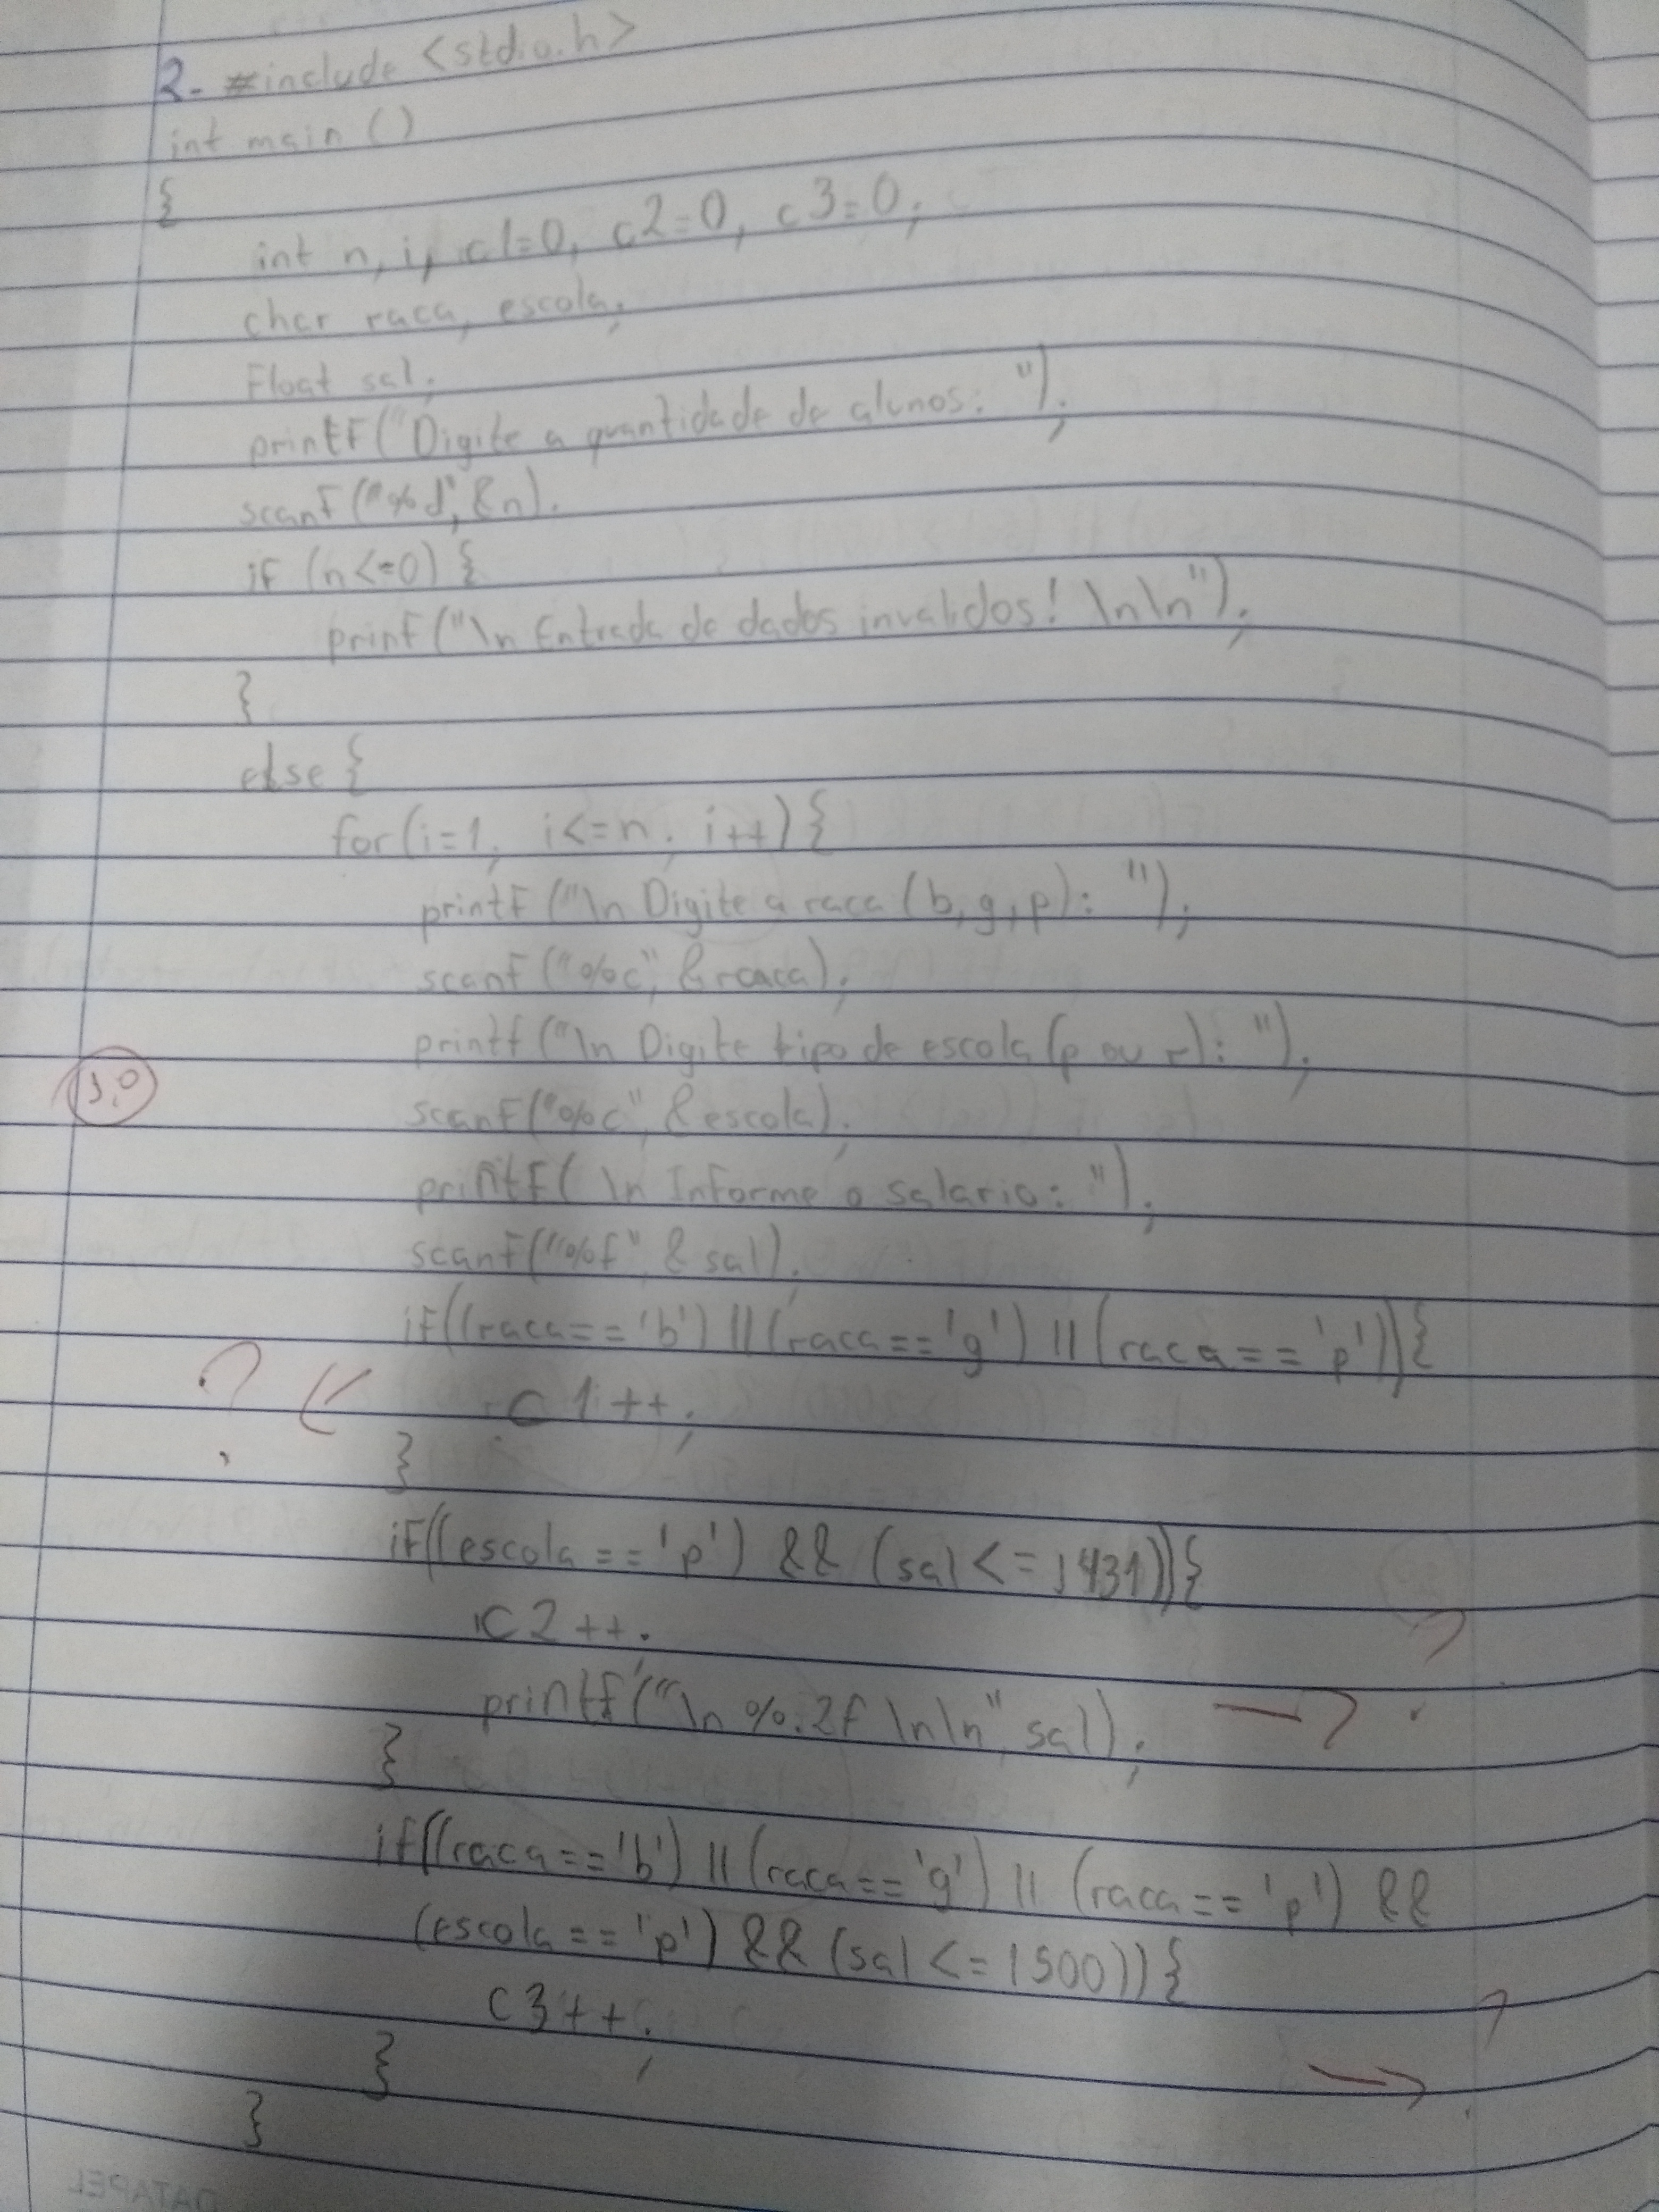 2- #include <stdio.h>
int main ()
{
int n, i, c1=0, c2=0, c3=0;
char raca, escola;
Float sal;
printf("Digite a quantidade de alunos: ");
scanf("%d", &n);
if (n<=0) {
prinf("\n Entrada de dados invalidos! \n\n");
}
else {
for(i=1; i<=n; i++) {
printf ("\n Digite a raca (b,g,p): ");
scanf ("%c", &raca);
printf ("\n Digite tipo de escola (p ou r): ");
scanf("%c", &escola);
printf( \n Informe o salario: ");
scanf("%f" & sal);
if((raca=='b') || (raca=='g') || (raca=='p')){
? (( c1++;
}
if((escola=='p') && (sal<=1431)){
c2++;
printf("\n %.2f \n\n", sal); ?
}
if((raca=='b') || (raca=='g') || (raca=='p') &&
(escola=='p') && (sal<=1500)){
c3++;
} ?
}
DATAPEL